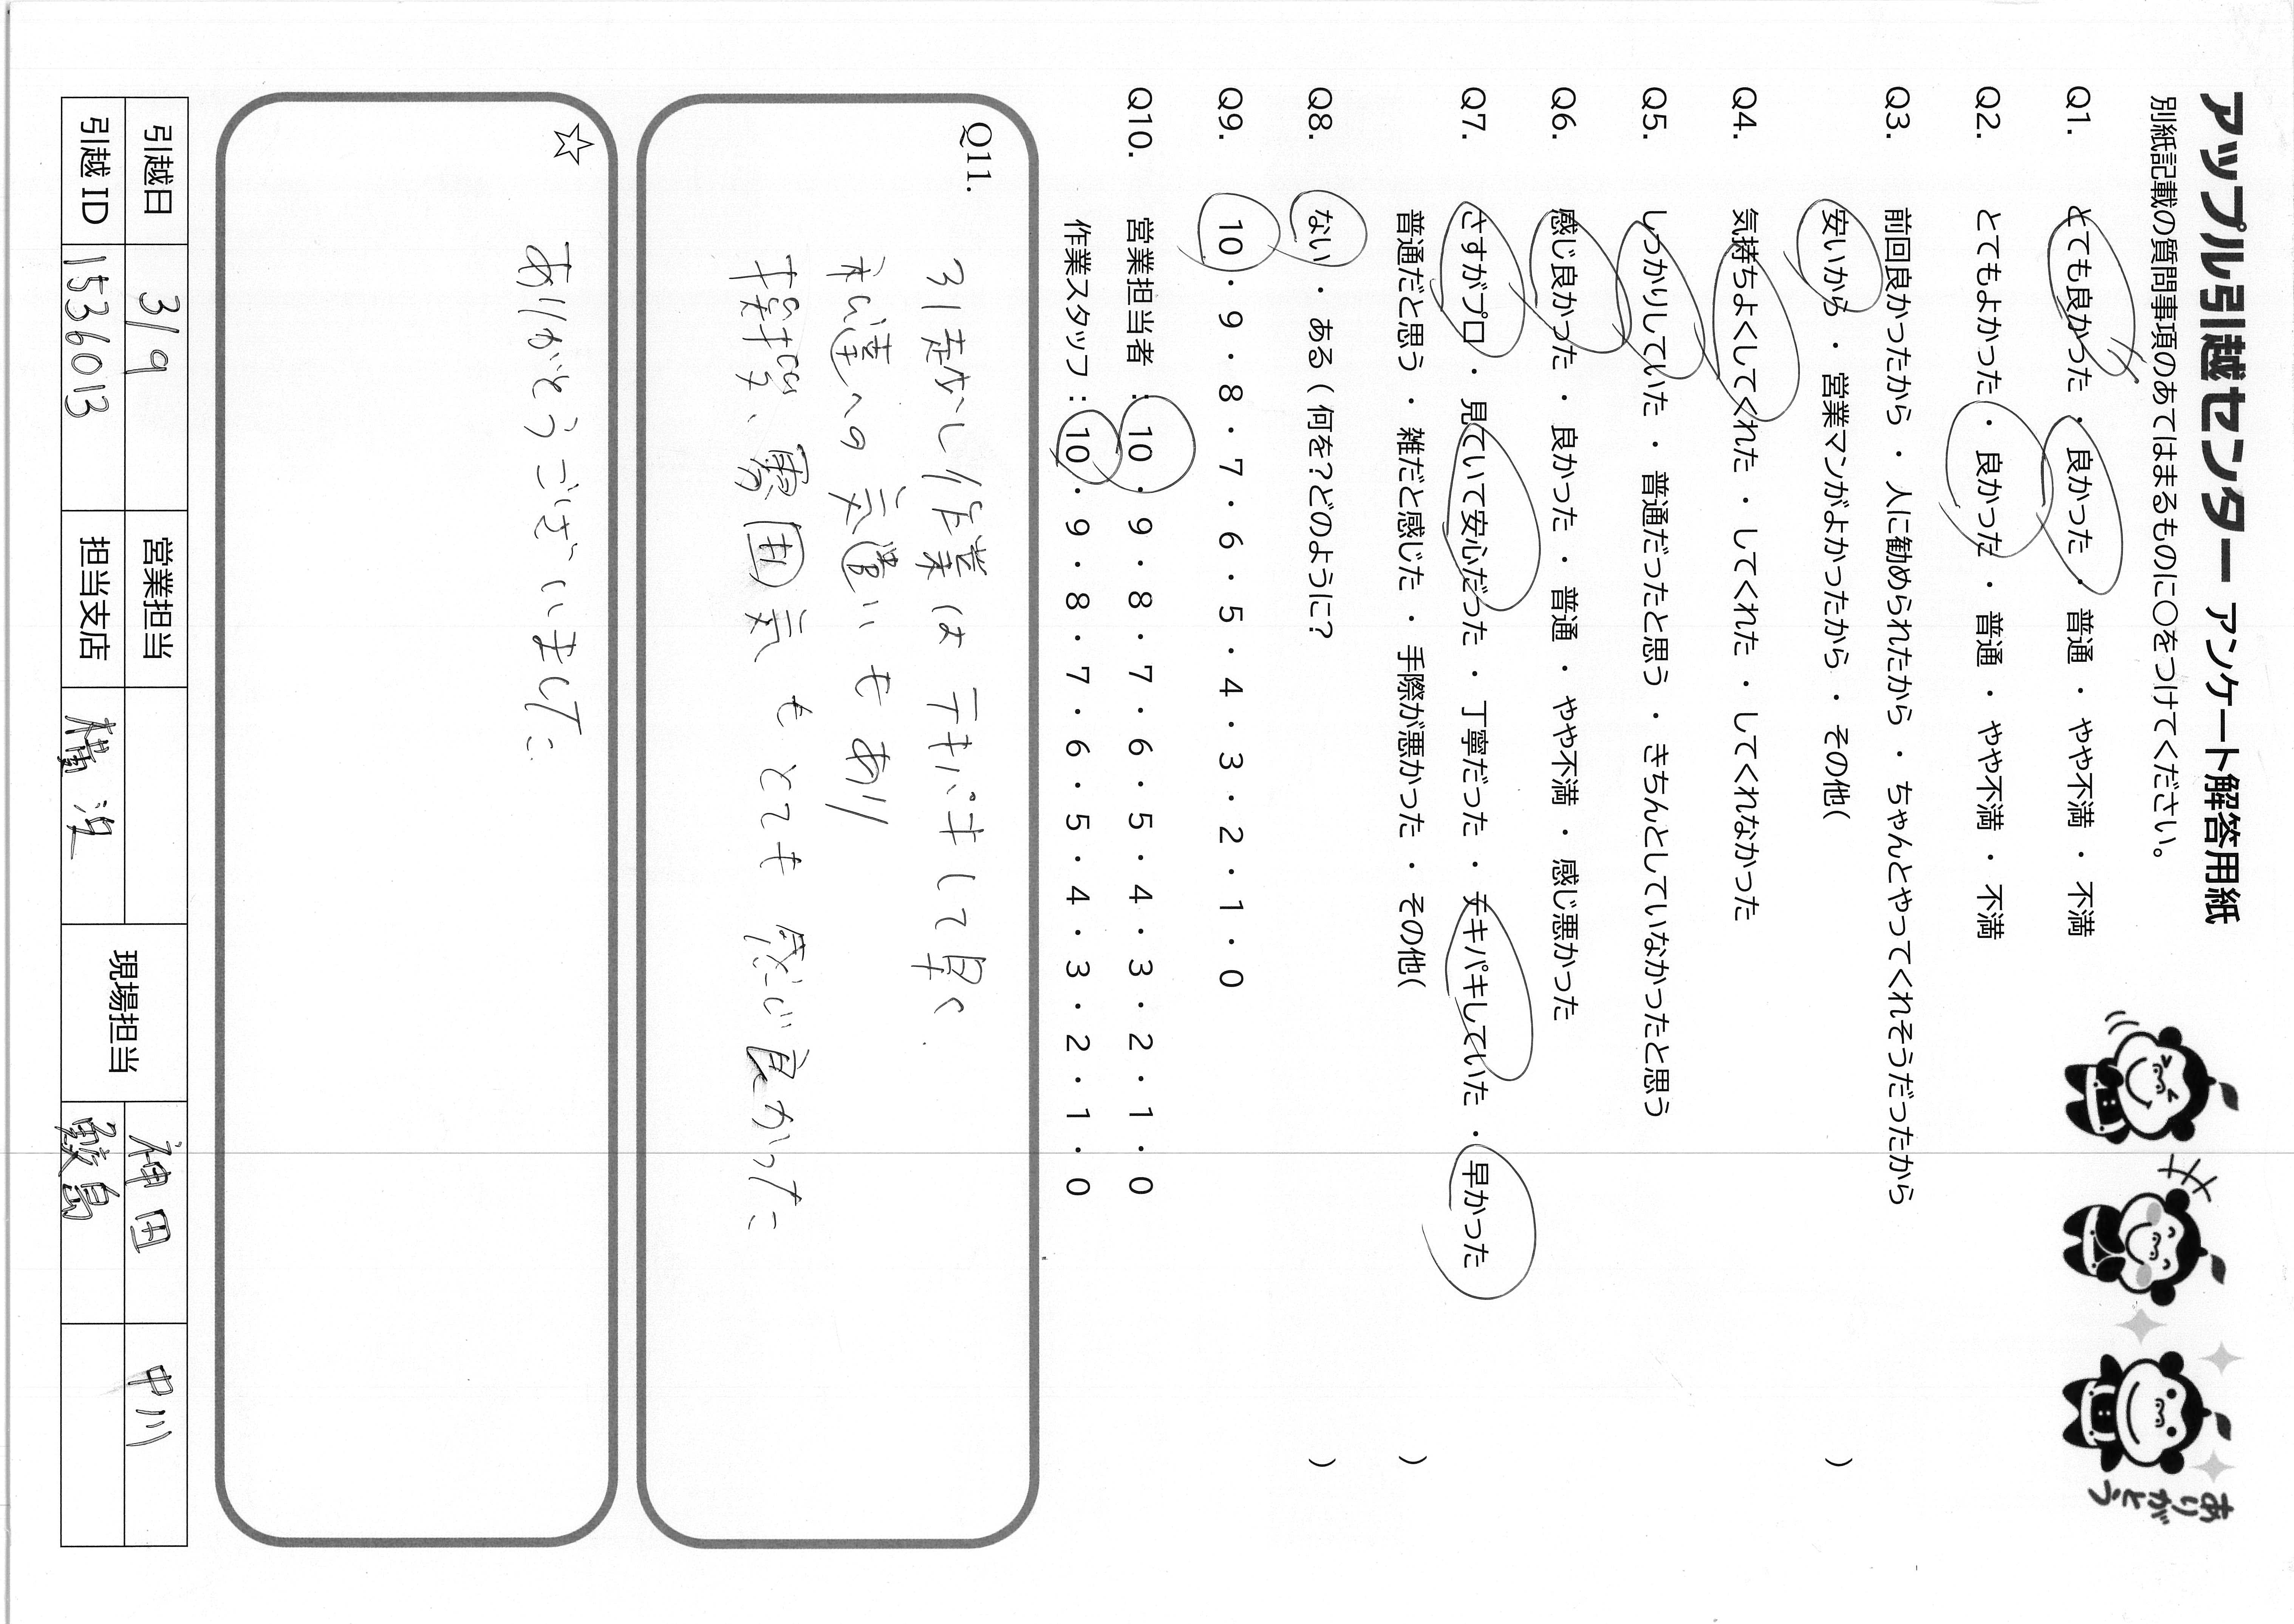 アップル引越センター アンケート解答用紙
別紙記載の質問事項のあてはまるものに○をつけてください。
ありがとう
Q1. とても良かった ・ 良かった ・ 普通 ・ やや不満 ・ 不満
Q2. とてもよかった ・ 良かった ・ 普通 ・ やや不満 ・ 不満
Q3. 前回良かったから ・ 人に勧められたから ・ ちゃんとやってくれそうだったから
安いから ・ 営業マンがよかったから ・ その他( )
Q4. 気持ちよくしてくれた ・ してくれた ・ してくれなかった
Q5. しっかりしていた ・ 普通だったと思う ・ きちんとしていなかったと思う
Q6. 感じ良かった ・ 良かった ・ 普通 ・ やや不満 ・ 感じ悪かった
Q7. さすがプロ ・ 見ていて安心だった ・ 丁寧だった ・ テキパキしていた ・ 早かった
普通だと思う ・ 雑だと感じた ・ 手際が悪かった ・ その他( )
Q8. ない ・ ある ( 何を?どのように? )
Q9. 10 ・ 9 ・ 8 ・ 7 ・ 6 ・ 5 ・ 4 ・ 3 ・ 2 ・ 1 ・ 0
Q10. 営業担当者 : 10 ・ 9 ・ 8 ・ 7 ・ 6 ・ 5 ・ 4 ・ 3 ・ 2 ・ 1 ・ 0
作業スタッフ : 10 ・ 9 ・ 8 ・ 7 ・ 6 ・ 5 ・ 4 ・ 3 ・ 2 ・ 1 ・ 0
Q11.
引越し作業は テキパキして早く、
私達への気遣いもあり
挨拶、雰囲気もとても感じ良かった
☆
ありがとうございました
引越日 3/9 営業担当 現場担当 神田 中川
引越 ID 1536013 担当支店 横浜 飯島